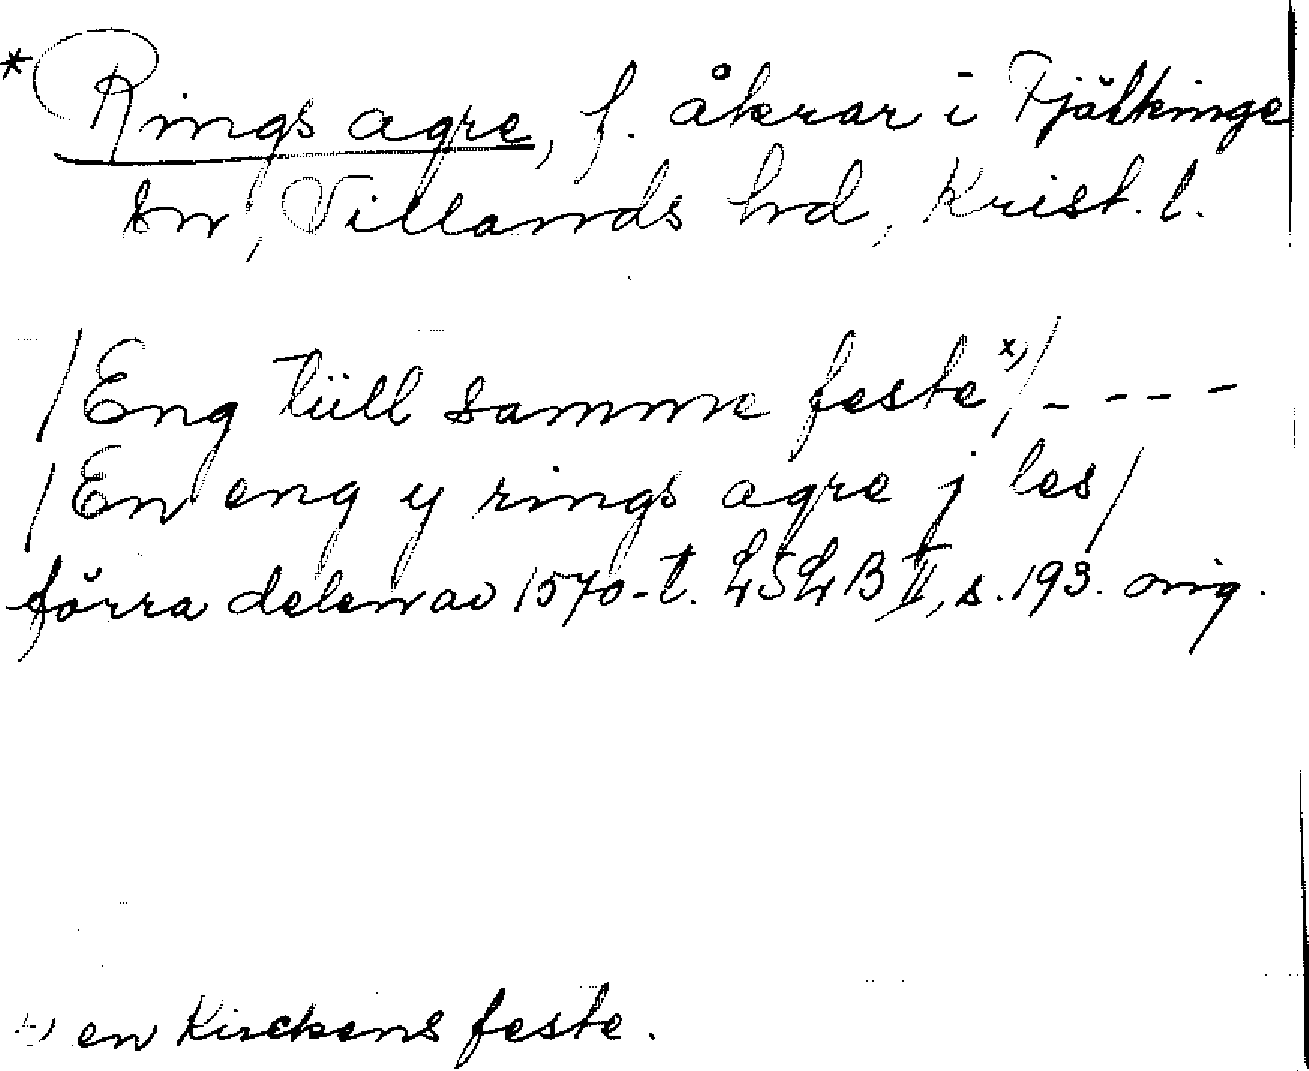 * Rings agre, f. åkrar i Fjälkinge
sn, Villands hd, Krist. l.
/Eng tüll samme feste x)/ - - - -
/En eng y rings agre j les/
förra delen av 1570-t. LSLB II, s. 193. orig.
x) en Kirckens feste.